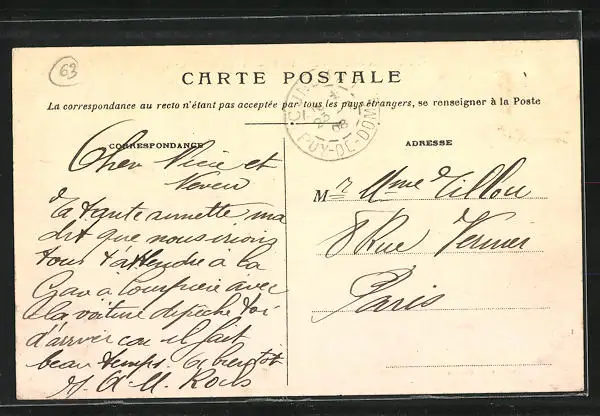 63
CARTE POSTALE
La correspondance au recto n'étant pas acceptée par tous les pays étrangers, se renseigner à la Poste
CORRESPONDANCE
Cher Nièce et
Neveu
La tante annette ma
dit que nous irions
tous t'attendre à la
Gare à avec
la voiture dépêche toi
d'arriver car il fait
beau temps. a bientôt
PUY-DE-DOME
ADRESSE
Mr Mme Tillou
8 Rue Vernier
Paris